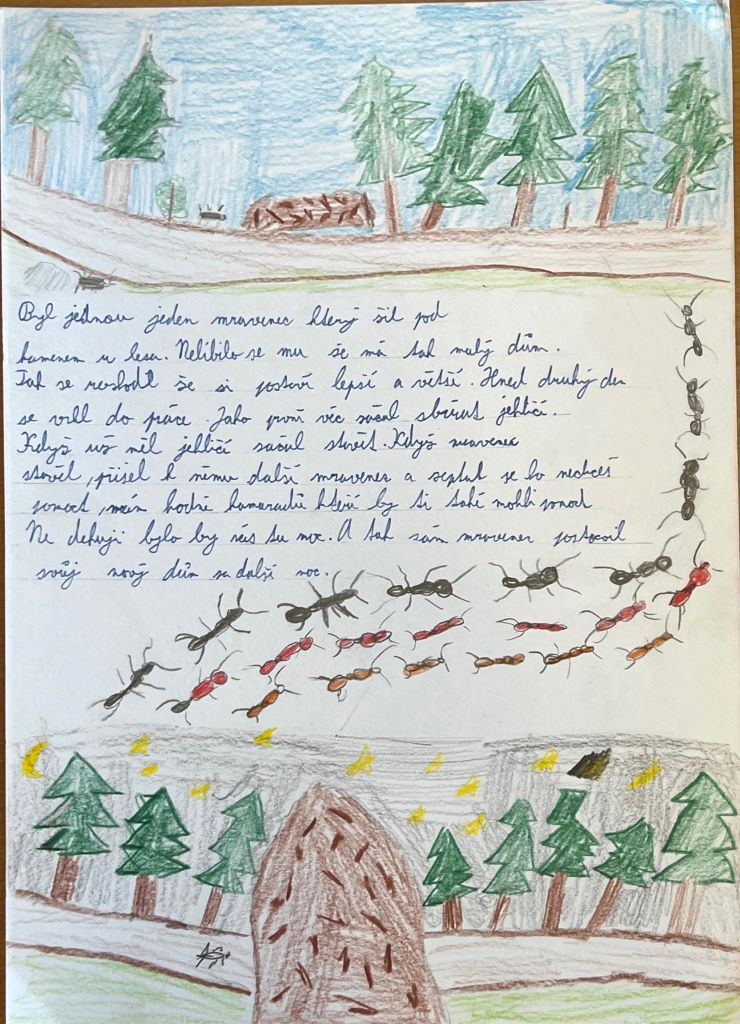 Byl jednou jeden mravenec který žil pod
kamenem u lesa. Nelíbilo se mu že má tak malý dům.
Tak se rozhodl že si postaví lepší a větší. Hned druhý den
se vrll do práce. Jako první věc začal sbírat jehličí.
Když už měl jehličí začal stavět. Když mravenec
stavěl, přišel k němu další mravenec a zeptal se ho nechceš
pomoct, mám hodně kamarádů kteří by ti také mohli pomoct
Ne děkuji bylo by vás tu moc. A tak sám mravenec postavil
svůj nový dům za další noc.